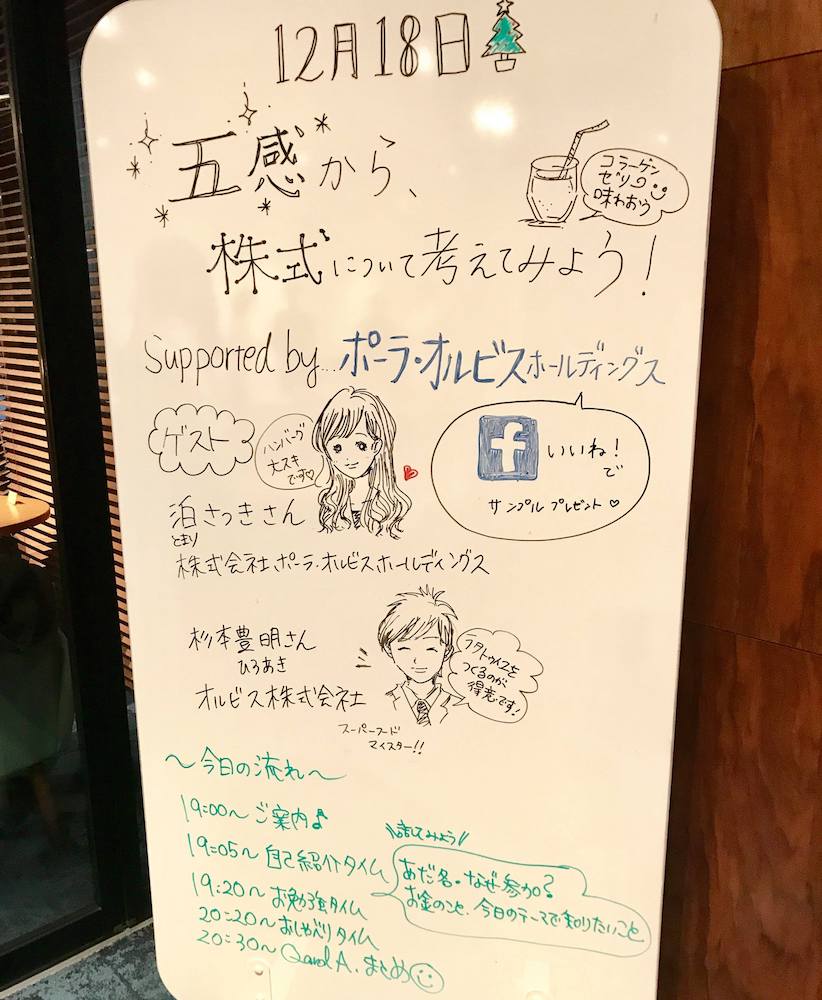 12月18日
五感から、
コラーゲン
ゼリー
味わおう
株式について考えてみよう!
Supported by... ポーラ・オルビスホールディングス
ゲスト
ハンバーグ
大スキ
です♡
f いいね!
で
サンプルプレゼント♡
泊さつきさん
とまり
株式会社ポーラ・オルビスホールディングス
杉本豊明さん
ひろあき
オルビス株式会社
ラタトゥイユを
つくるのが
得意です!
スーパーフード
マイスター!!
〜今日の流れ〜
19:00〜ご案内♪
19:05〜自己紹介タイム
\\話してみよう//
あだ名・なぜ参加?
お金のこと、今日のテーマで知りたいこと
19:20〜お勉強タイム
20:20〜おしゃべりタイム
20:30〜Q and A、まとめ